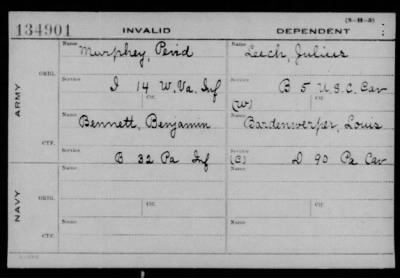 (3-M-3)
134901 INVALID DEPENDENT
Name Name
Murphey, Penid Leech, Julius
ORIG. Service Service
I 14 W. Va. Inf B 5 U.S.C. Cav
Of. (W) Of.
ARMY
Name Name
Bennett, Benjamin Bardenwerper, Louis
CTF. Service (C) Service
B 32 Pa Inf D 90 Pa Cav
Name Name
ORIG.
Of. Of.
NAVY
Name Name
CTF.